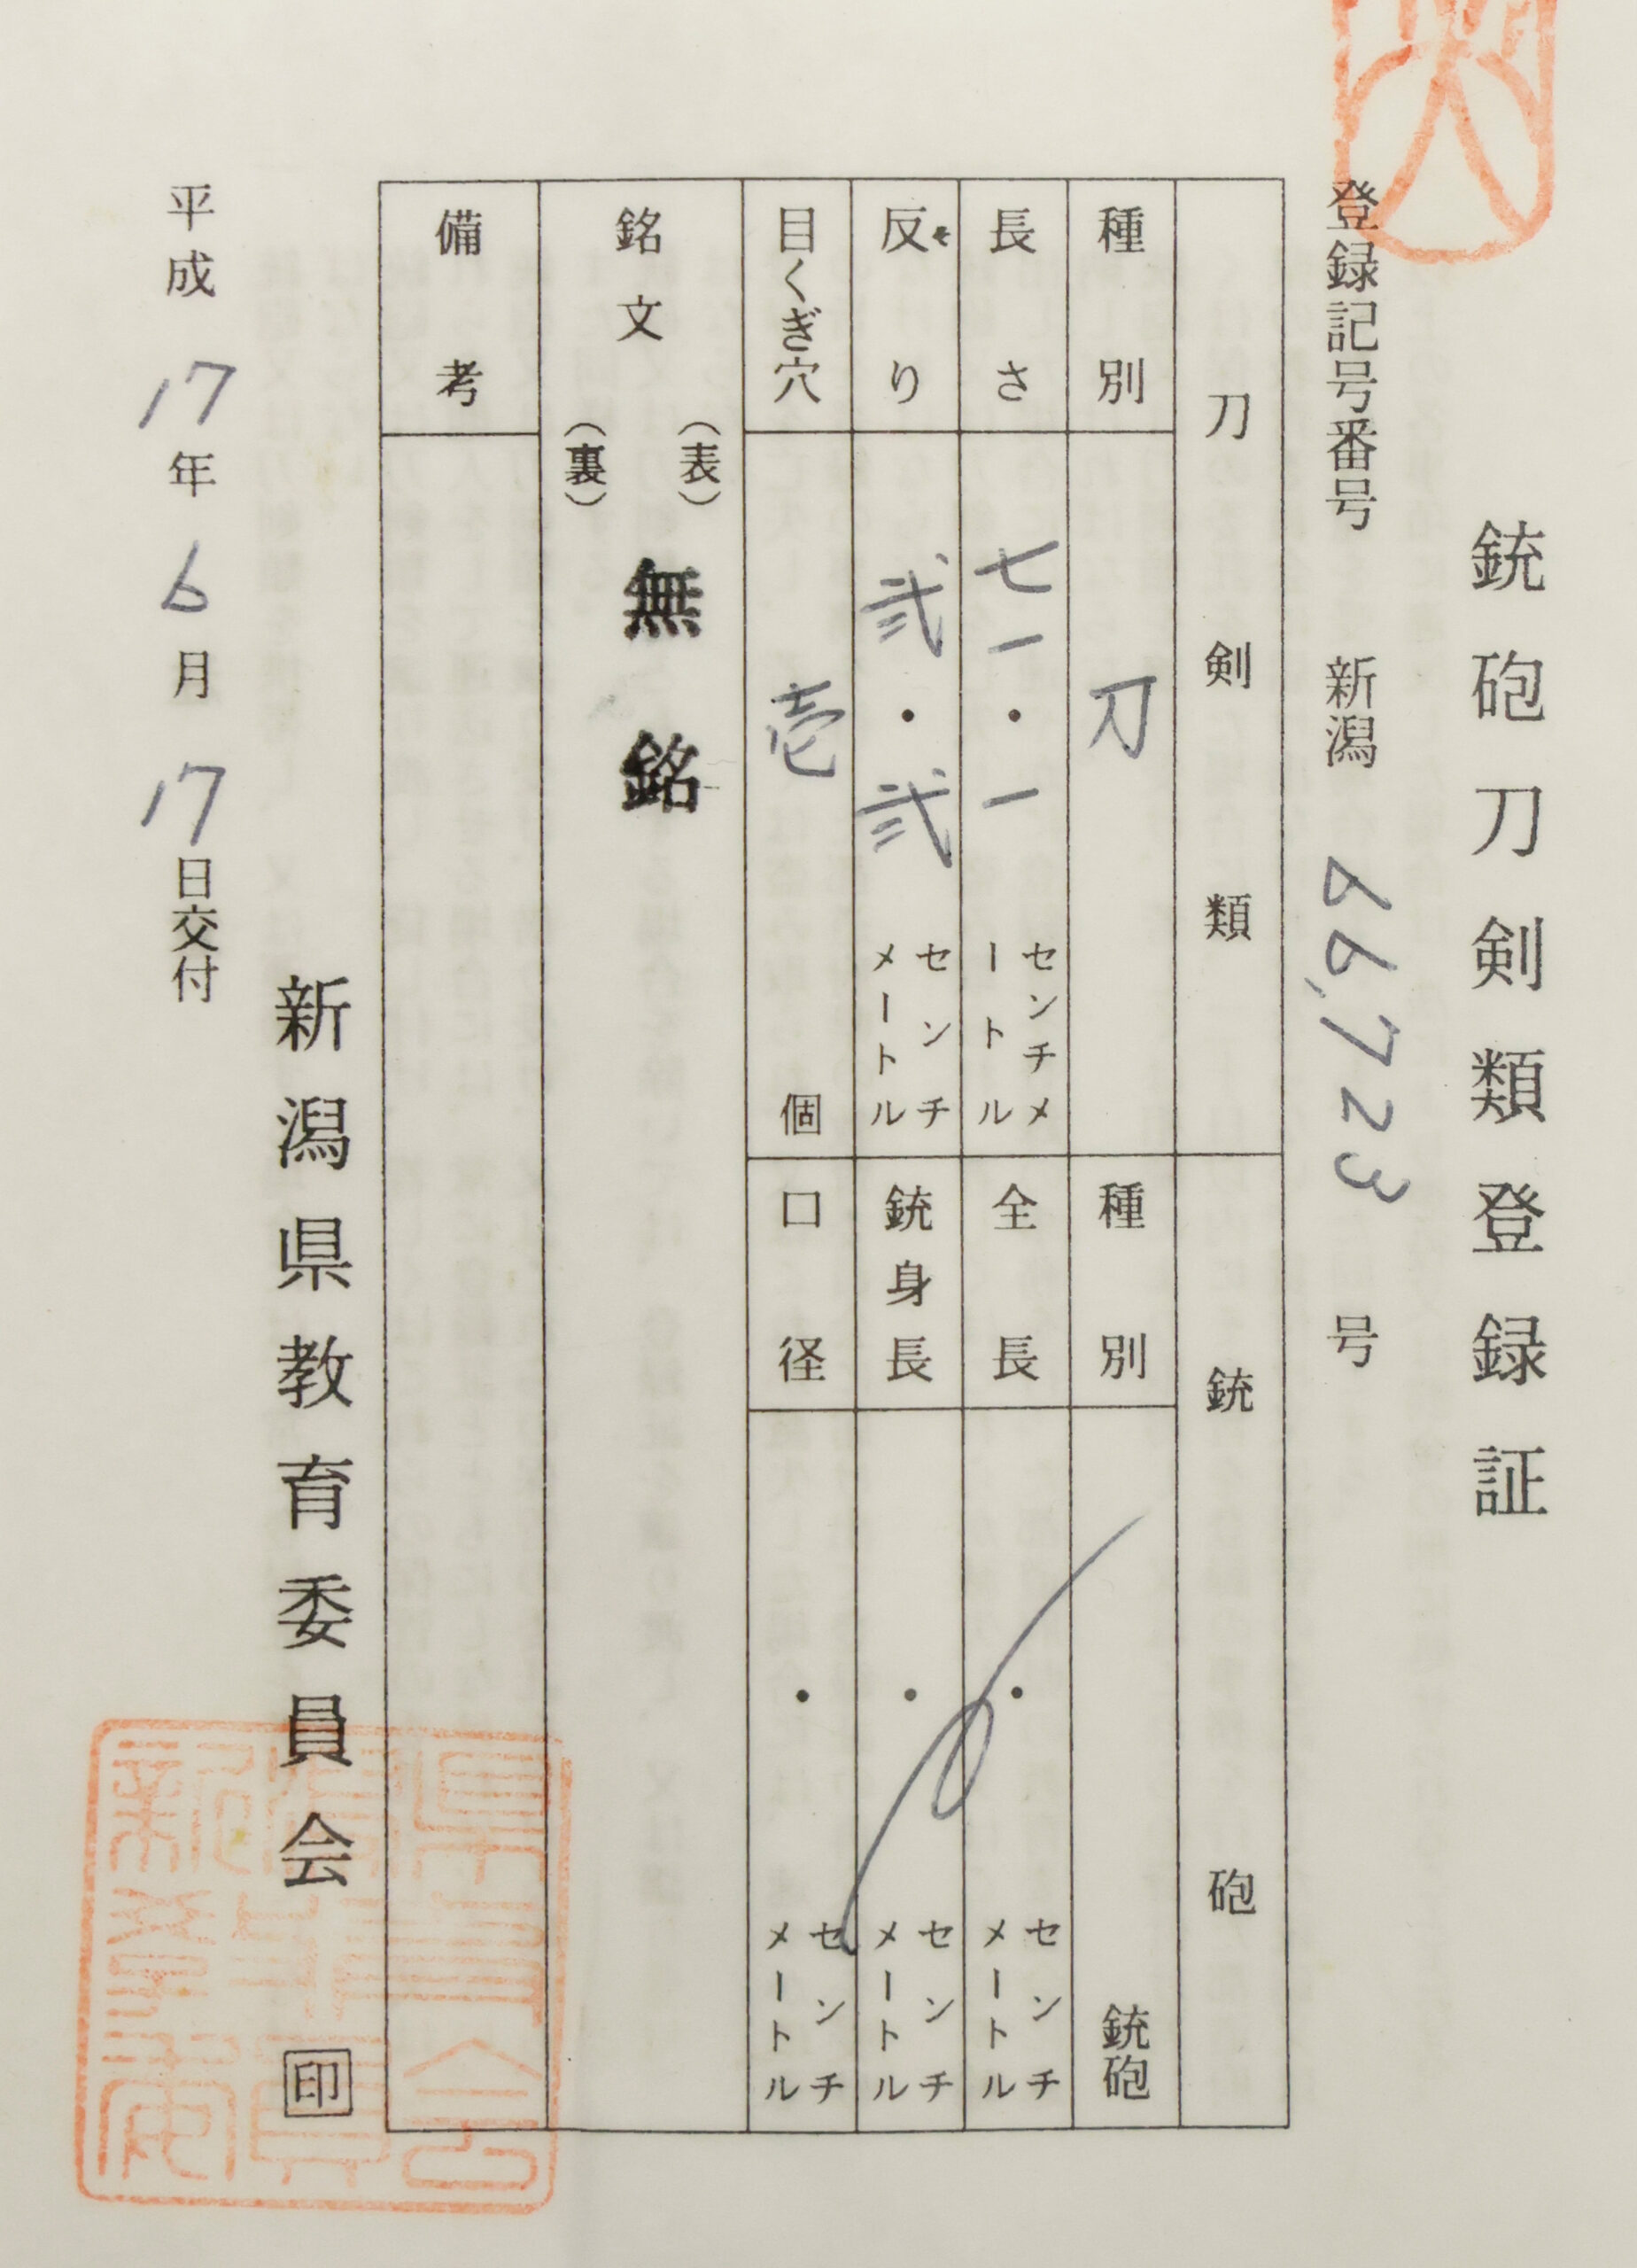 銃砲刀剣類登録証
登録記号番号 新潟 66,723 号
刀剣類
銃砲
種別 刀
種別 銃砲
長さ 七一・一 センチメートル
全長 ・ センチメートル
反り 弐・弐 センチメートル
そ
銃身長 ・ センチメートル
目くぎ穴 壱 個
口径 ・ センチメートル
銘文 (表) 無銘
(裏)
備考
新潟県教育委員会 印
平成17年6月17日交付